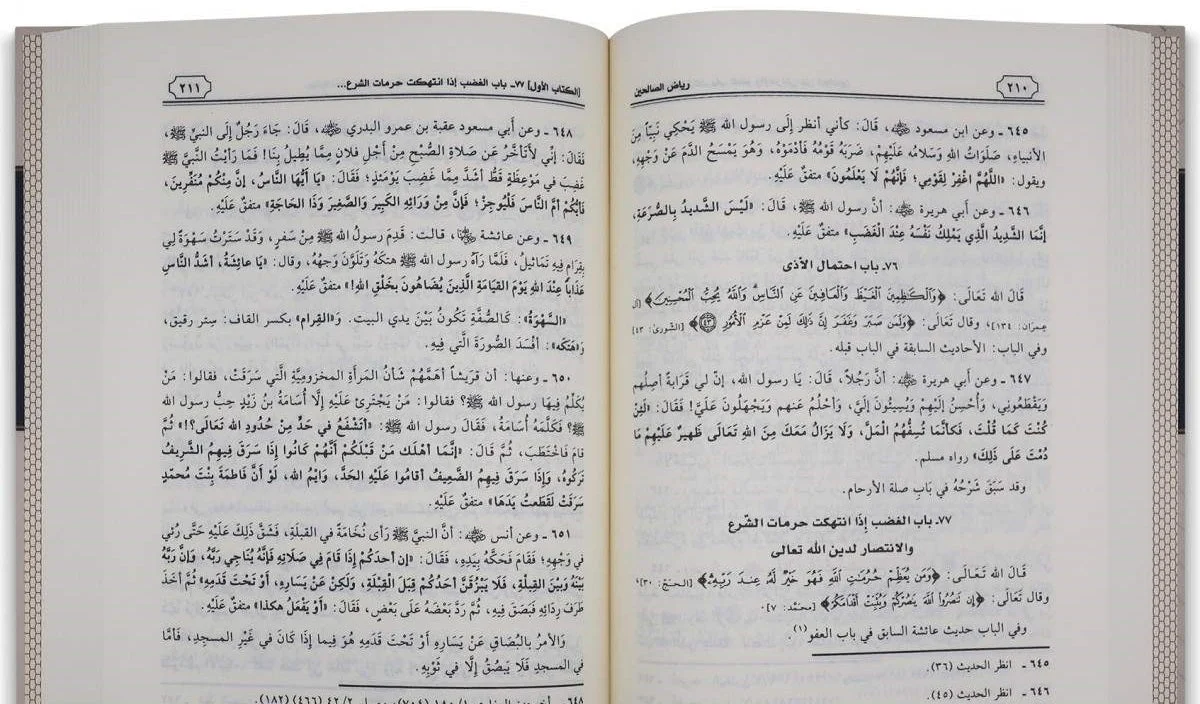 ٢١٠
رياض الصالحين
٦٤٥ ـ وعن ابن مسعود ﷺ، قَالَ: كأني أنظر إلَى رسول الله ﷺ يَحْكِي نَبِيّاً مِنَ
الأنبياءِ، صَلَوَاتُ اللهِ وَسَلامُه عَلَيْهِمْ، ضَرَبَهُ قَوْمُهُ فَأدْمَوْهُ، وَهُوَ يَمْسَحُ الدَّمَ عَنْ وَجْهِهِ،
ويقول: «اللَّهُمَّ اغْفِرْ لِقَوْمِي؛ فَإنَّهُمْ لَا يَعْلَمُونَ» متفقٌ عَلَيْهِ.
٦٤٦ ـ وعن أَبي هريرة: أنَّ رسول الله ﷺ، قَالَ: «لَيْسَ الشَّدِيدُ بِالصُّرَعَةِ،
إنَّمَا الشَّدِيدُ الَّذِي يَمْلِكُ نَفْسَهُ عِنْدَ الْغَضَبِ» متفقٌ عَلَيْهِ.
٧٦ـ باب احتمال الأذى
قَالَ الله تَعَالَى: ﴿وَٱلْكَٰظِمِينَ ٱلْغَيْظَ وَٱلْعَافِينَ عَنِ ٱلنَّاسِ وَٱللَّهُ يُحِبُّ ٱلْمُحْسِنِينَ﴾ [آل
عِمرَان: ١٣٤]؛ وقال تَعَالَى: ﴿وَلَمَن صَبَرَ وَغَفَرَ إِنَّ ذَٰلِكَ لَمِنْ عَزْمِ ٱلْأُمُورِ ٤٣﴾ [الشّورى: ٤٣]
وفي الباب: الأحاديث السابقة في الباب قبله.
٦٤٧ ـ وعن أَبي هريرة: أنَّ رَجُلاً، قَالَ: يَا رسول الله، إنّ لي قَرَابةً أصِلُهم
وَيَقْطَعُوني، وَأُحْسِنُ إلَيْهِمْ وَيُسِيئُونَ إلَيَّ، وَأحْلُمُ عَنهم وَيَجْهَلُونَ عَلَيَّ! فَقَالَ: «لَئِنْ
كُنْتَ كَمَا قُلْتَ، فَكَأنَّمَا تُسِفُّهُمُ الْمَلَّ، وَلَا يَزَالُ مَعَكَ مِنَ اللهِ تَعَالَى ظَهِيرٌ عَلَيْهِمْ مَا
دُمْتَ عَلَى ذلِكَ» رواه مسلم.
وقد سَبَقَ شَرْحُهُ في بَابِ صلة الأرحام.
٧٧ـ باب الغضب إِذَا انتهكت حرمات الشّرع
والانتصار لدين الله تعالى
قَالَ الله تَعَالَى: ﴿وَمَن يُعَظِّمْ حُرُمَٰتِ ٱللَّهِ فَهُوَ خَيْرٌ لَّهُۥ عِندَ رَبِّهِۦ﴾ [الحَجّ: ٣٠]
وقال تَعَالَى: ﴿إِن تَنصُرُواْ ٱللَّهَ يَنصُرْكُمْ وَيُثَبِّتْ أَقْدَامَكُمْ﴾ [محمَّد: ٧].
وفي الباب حديث عائشة السابق في باب العفو(١).
٦٤٥ ـ انظر الحديث (٣٦).
٦٤٦ ـ انظر الحديث (٤٥).
[الكتاب الأول] ٧٧ـ باب الغضب إذا انتهكت حرمات الشرع...
٢١١
٦٤٨ ـ وعن أَبي مسعود عقبة بن عمرو البدري، قَالَ: جَاءَ رَجُلٌ إلَى النبيِّ ﷺ،
فَقَالَ: إنِّي لأَتَأخَّرُ عَن صَلاةِ الصُّبْحِ مِنْ أجْلِ فلانٍ مِمَّا يُطِيلُ بِنَا! فَمَا رَأيْتُ النَّبيَّ ﷺ
غَضِبَ في مَوْعِظَةٍ قَطُّ أشَدَّ مِمَّا غَضِبَ يَوْمَئذٍ؛ فَقَالَ: «يَا أيُّهَا النَّاسُ، إنَّ مِنْكُمْ مُنَفِّرِينَ،
فَأيُّكُمْ أمَّ النَّاسَ فَلْيُوجِزْ؛ فَإنَّ مِنْ وَرَائِهِ الكَبِيرَ وَالصَّغِيرَ وَذَا الحَاجَةِ» متفقٌ عَلَيْهِ.
٦٤٩ ـ وعن عائشة، قالت: قَدِمَ رَسولُ الله ﷺ مِنْ سَفرٍ، وَقَدْ سَتَرْتُ سَهْوَةً لِي
بِقِرَامٍ فِيهِ تَمَاثيلُ، فَلَمَّا رَآهُ رسول الله ﷺ هتكَهُ وَتَلَوَّنَ وَجْهُهُ، وقال: «يَا عائِشَةُ، أشَدُّ النَّاسِ
عَذَاباً عِنْدَ اللهِ يَوْمَ القيَامَةِ الَّذِينَ يُضَاهُونَ بِخَلْقِ اللهِ!» متفقٌ عَلَيْهِ.
«السَّهْوَةُ»: كَالصُّفَّةِ تَكُونُ بَيْنَ يدي البيت. وَ«القِرام» بكسر القاف: سِتر رقيق،
وَ«هَتَكَه»: أفْسَدَ الصُّورَةَ الَّتي فِيهِ.
٦٥٠ ـ وعنها: أن قرَيشاً أهَمَّهُمْ شَأنُ المَرأَةِ المخزومِيَّةِ الَّتي سَرَقَتْ، فقالوا: مَنْ
يُكَلِّمُ فِيهَا رسول الله ﷺ؟ فقالوا: مَنْ يَجْتَرِئُ عَلَيْهِ إلَّا أُسَامَةُ بنُ زَيْدٍ حِبُّ رسول الله
ﷺ؟ فَكَلَّمَهُ أُسَامَةُ، فَقَالَ رسول الله ﷺ: «أتَشْفَعُ في حَدٍّ مِنْ حُدُودِ الله تَعَالَى؟!» ثُمَّ
قامَ فَاخْتَطَبَ، ثُمَّ قَالَ: «إنَّمَا أهْلَك مَنْ قَبْلَكُمْ أنَّهُمْ كَانُوا إذَا سَرَقَ فِيهِمُ الشَّرِيفُ
تَرَكُوهُ، وَإذَا سَرَقَ فِيهِمُ الضَّعِيفُ أقامُوا عَلَيْهِ الحَدَّ، وَايْمُ الله، لَوْ أَنَّ فَاطِمَةَ بِنْتَ مُحمّدٍ
سَرَقَتْ لَقَطَعتُ يَدَهَا» متفقٌ عَلَيْهِ.
٦٥١ ـ وعن أنس: أنَّ النبيَّ ﷺ رَأى نُخَامَةً في القبلَةِ، فَشَقَّ ذَلِكَ عَلَيْهِ حَتَّى رُئي
في وَجْهِهِ؛ فَقَامَ فَحَكَّهُ بِيَدِهِ، فَقَالَ: «إن أحدَكُمْ إذَا قَامَ فِي صَلَاتِهِ فَإنَّهُ يُنَاجِي رَبَّهُ، وَإنَّ رَبَّهُ
بَيْنَهُ وَبَيْنَ القِبلَةِ، فَلَا يَبْزُقَنَّ أحَدُكُمْ قِبَلَ الْقِبْلَةِ، وَلَكِنْ عَنْ يَسَارِهِ، أوْ تَحْتَ قَدَمِهِ» ثُمَّ أخَذَ
طَرَفَ رِدَائِهِ فَبَصَقَ فِيهِ، ثُمَّ رَدَّ بَعْضَهُ عَلَى بَعْضٍ، فَقَالَ: «أوْ يَفْعَلُ هكذا» متفقٌ عَلَيْهِ.
وَالأمرُ بالبُصَاقِ عَنْ يَسَارِهِ أوْ تَحْتَ قَدَمِهِ هُوَ فِيما إذَا كَانَ في غَيْرِ المسجِدِ، فَأمَّا
في المسجدِ فَلَا يَبصُقُ إلَّا في ثَوْبِهِ.